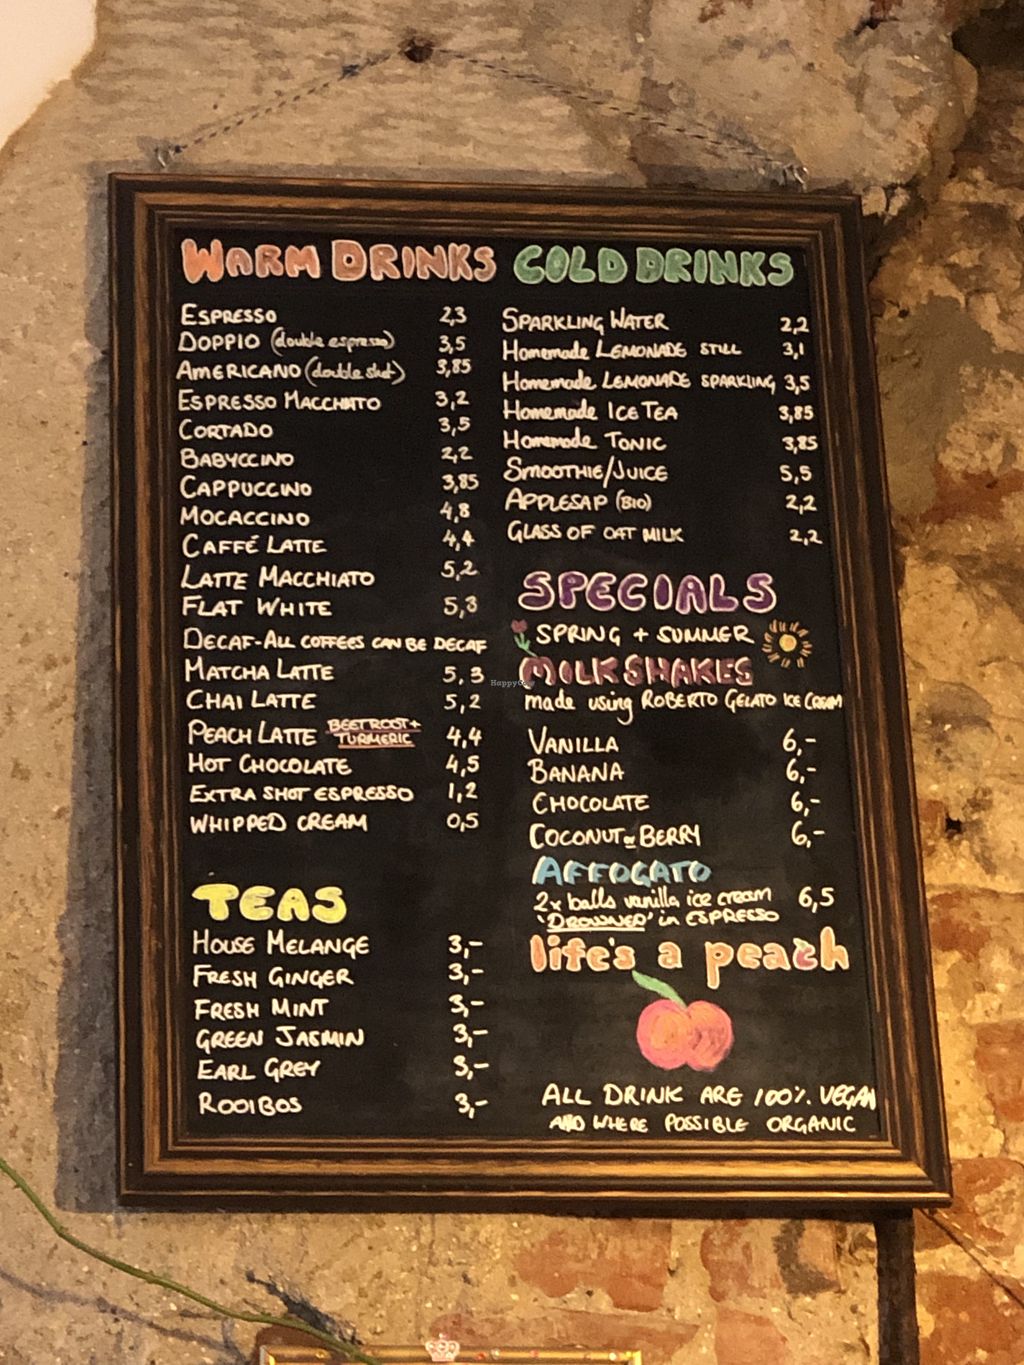 WARM DRINKS
ESPRESSO 2,3
DOPPIO (double espresso) 3,5
AMERICANO (double shot) 3,85
ESPRESSO MACCHIATO 3,2
CORTADO 3,5
BABYCCINO 2,2
CAPPUCCINO 3,85
MOCACCINO 4,8
CAFFÉ LATTE 4,4
LATTE MACCHIATO 5,2
FLAT WHITE 5,3
DECAF-ALL COFFEES CAN BE DECAF
MATCHA LATTE 5,3
CHAI LATTE 5,2
PEACH LATTE BEETROOT + TURMERIC 4,4
HOT CHOCOLATE 4,5
EXTRA SHOT ESPRESSO 1,2
WHIPPED CREAM 0,5
TEAS
HOUSE MELANGE 3,-
FRESH GINGER 3,-
FRESH MINT 3,-
GREEN JASMIN 3,-
EARL GREY 3,-
ROOIBOS 3,-
COLD DRINKS
SPARKLING WATER 2,2
Homemade LEMONADE STILL 3,1
Homemade LEMONADE SPARKLING 3,5
Homemade ICE TEA 3,85
Homemade TONIC 3,85
SMOOTHIE/JUICE 5,5
APPLESAP (BIO) 2,2
GLASS OF OAT MILK 2,2
SPECIALS
SPRING + SUMMER
MILKSHAKES
made using ROBERTO GELATO ICE CREAM
VANILLA 6,-
BANANA 6,-
CHOCOLATE 6,-
COCONUT or BERRY 6,-
AFFOGATO
2x balls vanilla ice cream 6,5
'DROWNED' in ESPRESSO
life's a peach
ALL DRINK ARE 100% VEGAN
AND WHERE POSSIBLE ORGANIC
HappyCow